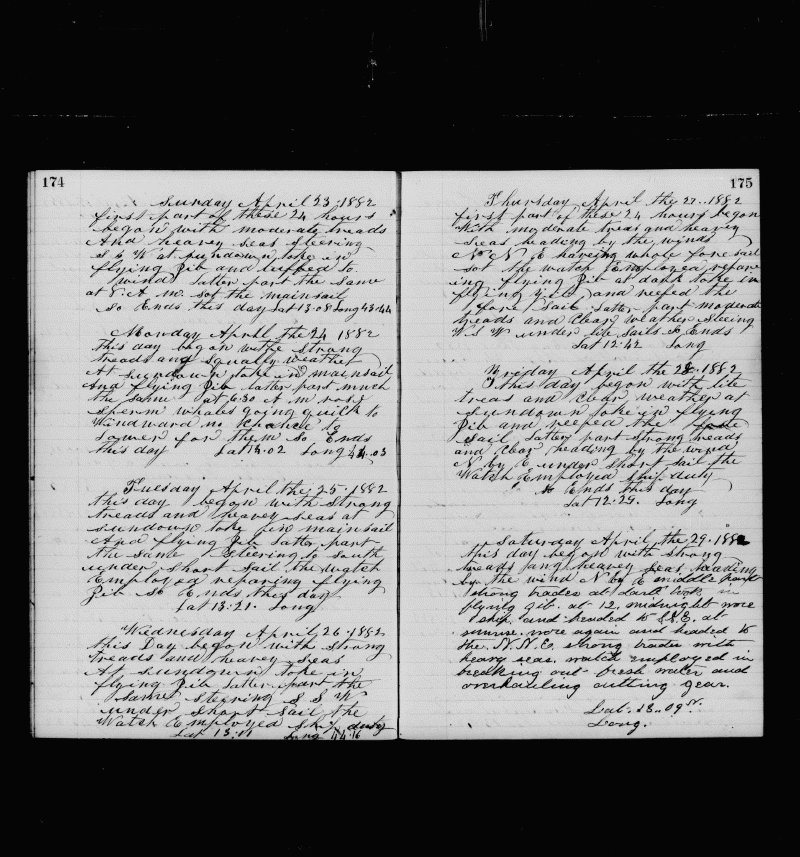 174
Sunday April 23, 1882
first part of these 24 hours
began with moderate treads
And heavey seas steering
S by W at sundown toke in
flying Jib and luffed to
wind latter part the same
at 5 A M sot the mainsail
So Ends this day Lat 13-08 Long 43-44
Monday Aprill the 24 1882
this day began withe strong
treads and Squally weather
At sundown take in mainsail
And flying Jib latter part much
the same at 6.30 A m rose
sperm whales going quick to
Windward no chance to
Lower for them So Ends
this day Lat 13.02 Long 44.03
Tuesday April the 25. 1882
this day began with strong
treads and heavey seas at
sundown toke in mainsail
And flying Jib latter part
the same steering to South
under short sail the watch
Employed reparing flying
Jib So Ends this day
Lat 13.21. Long
Wednesday April 26. 1882
this Day began with strong
treads and heavey seas
At sundown toke in
flying Jib latter part the
same steering S S W
under short sail the
Watch Employed ship duty
Lat 13:11 Long 44.16
175
Thursday April the 27.. 1882
first part of these 24 hours began
With moderate treas and heavey
seas heading by the winds
N N E having whole fore sail
sot the watch Employed repare
ing flying Jib at dark toke in
flying Jib and reefed the
fore sail latter part moderate
treads and Clear weather Steering
W S W under lite sails So Ends
Lat 12:42 Long
Friday April the 28. 1882
this day began with lite
treas and Clear weather at
sundown toke in flying
Jib and reefed the fore
sail lattery part strong treads
and Clear heading by the wind
N by E under short sail the
Watch Employed ship duty
So Ends this day
Lat 12.29. Long
Saturday April the 29. 1882
this day began with strong
treads and heavey seas heading
by the wind N by E middle part
strong trades at dark took in
flying gib. at 12, midnight wore
ship. and headed to S.S.E. at
sunrise. wore again and headed to
the N.N.E. strong trades with
heavy seas. watch employed in
breaking out fresh water and
overhauling cutting gear.
Lat. 13..09 N.
Long.